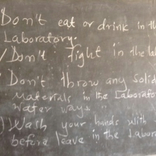 Don't eat or drink in the
Laboratory.
Don't fight in the lab
Don't throw any solid
materials in the Laborator
water ways.
Wash your hands with
before leave in the Labor